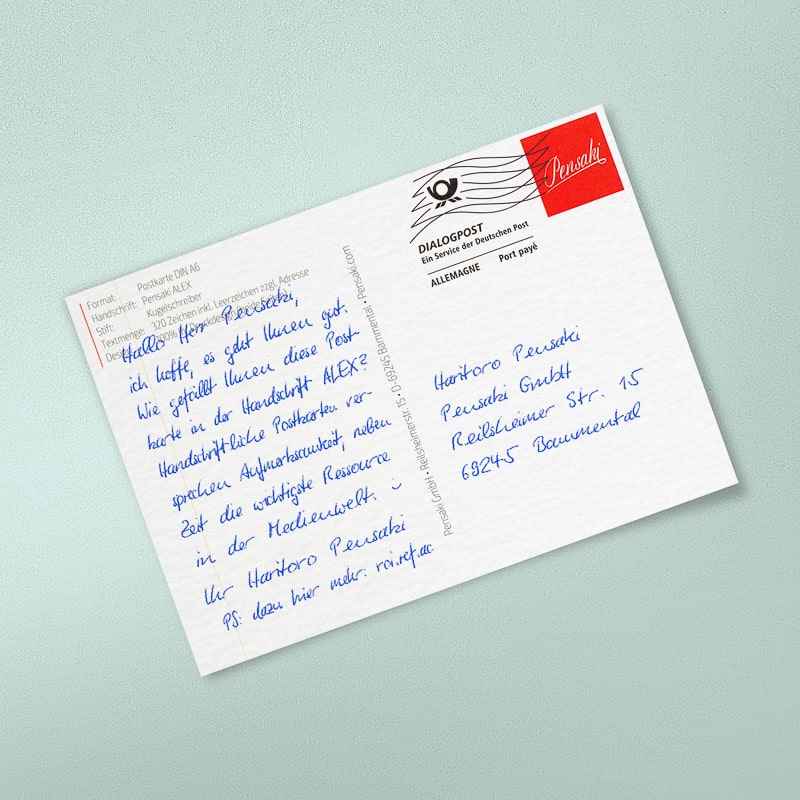 Format: Postkarte DIN A6
Handschrift: Pensaki ALEX
Stift: Kugelschreiber
Textmenge: 320 Zeichen inkl. Leerzeichen zzgl. Adresse
Hallo Herr Pensaki,
ich hoffe, es geht Ihnen gut.
Wie gefällt Ihnen diese Post-
karte in der Handschrift ALEX?
Handschriftliche Postkarten ver-
sprechen Aufmerksamkeit, neben
Zeit die wichtigste Ressource
in der Medienwelt. :)
Ihr Haritoro Pensaki
PS: dazu hier mehr: roi.ref.ac.
Pensaki GmbH • Reilsheimerstr. 15 • D-69245 Bammental • Pensaki.com
Pensaki
DIALOGPOST
Ein Service der Deutschen Post
ALLEMAGNE Port payé
Haritoro Pensaki
Pensaki GmbH
Reilsheimer Str. 15
69245 Bammental